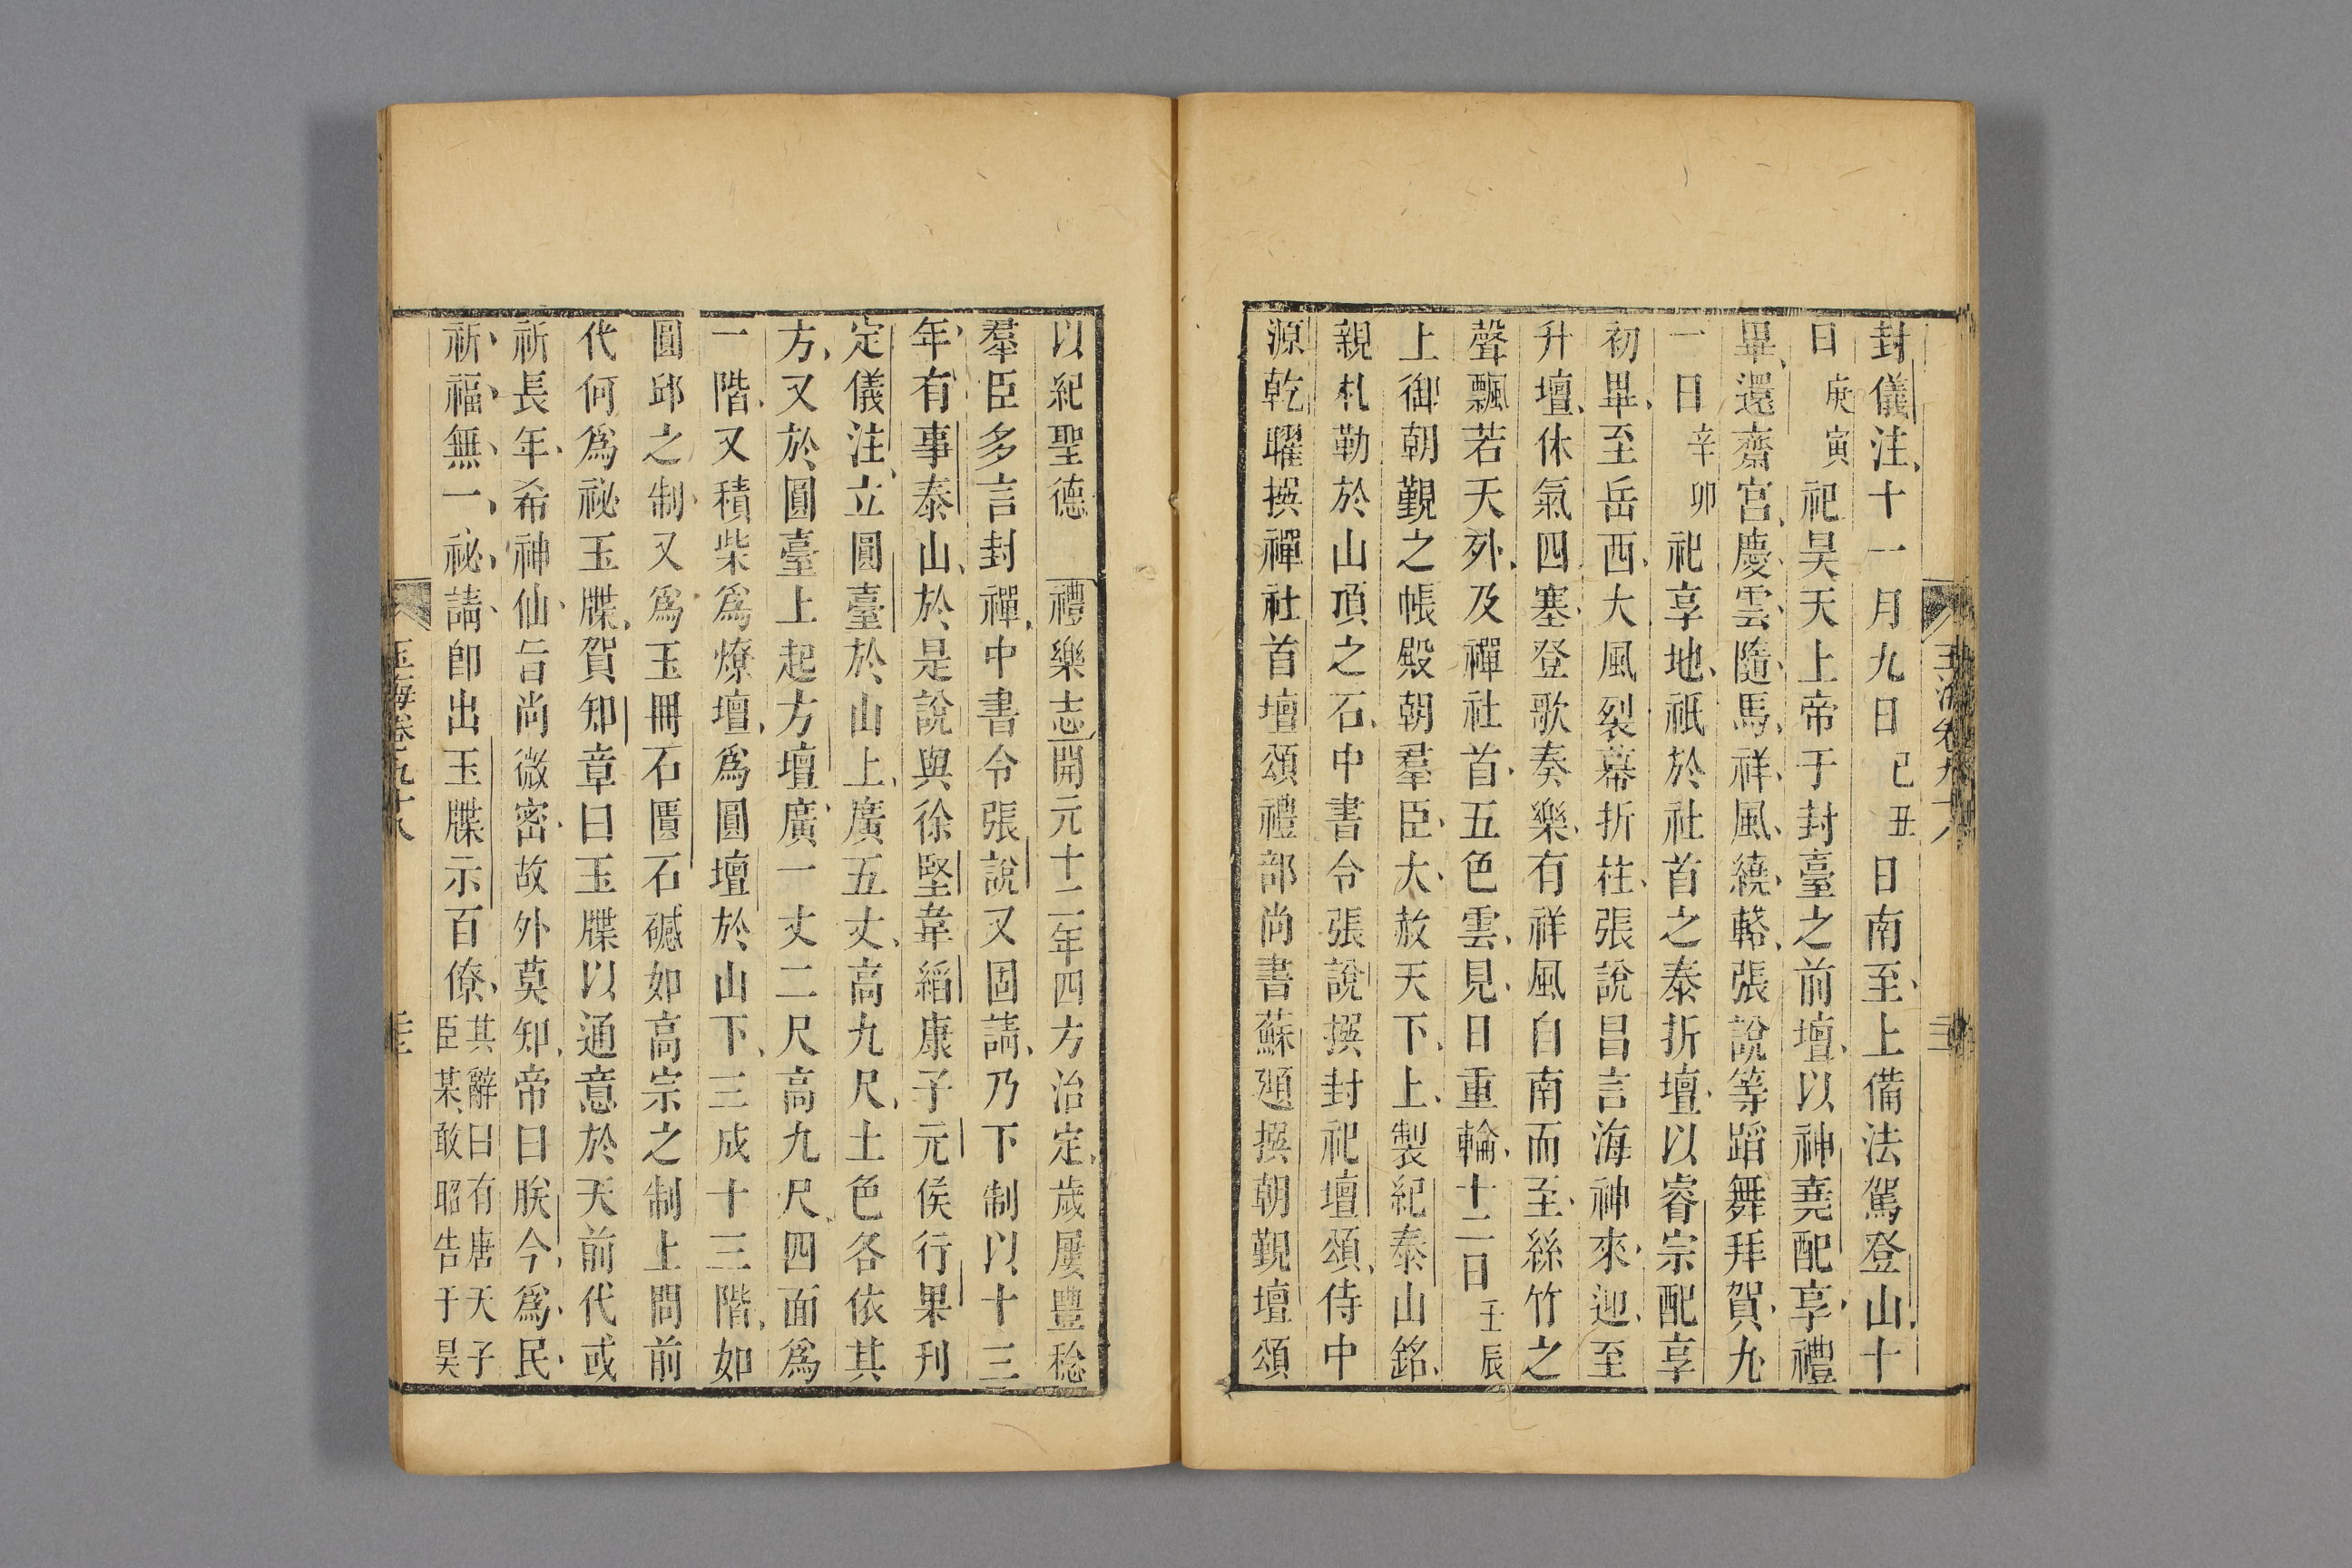 封儀注十一月九日己丑日南至上備法駕登山十
日庚寅祀昊天上帝于封臺之前壇以神堯配享禮
畢還齋宮慶雲隨馬祥風繞輅張說等蹈舞拜賀九
一日辛卯祀享地祇於社首之泰折壇以睿宗配享
初畢至岳西大風裂幕折柱張說昌言海神來迎至
升壇休氣四塞登歌奏樂有祥風自南而至絲竹之
聲飄若天外及禪社首五色雲見日重輪十二日壬辰
上御朝覲之帳殿朝羣臣大赦天下上製紀泰山銘
親札勒於山頂之石中書令張說撰封祀壇頌侍中
源乾曜撰禪社首壇頌禮部尚書蘇頲撰朝覲壇頌
以紀聖德 禮樂志開元十二年四方治定歲屢豐稔
羣臣多言封禪中書令張說又固請乃下制以十三
年有事泰山於是說與徐堅韋縚康子元侯行果刊
定儀注立圓臺於山上廣五丈高九尺土色各依其
方又於圓臺上起方壇廣一丈二尺高九尺四面為
一階又積柴為燎壇為圓壇於山下三成十三階如
圓邱之制又為玉冊石匱石䃭如高宗之制上問前
代何為祕玉牒賀知章曰玉牒以通意於天前代或
祈長年希神仙旨尚微密故外莫知帝曰朕今為民
祈福無一祕請即出玉牒示百僚其辭曰有唐天子臣某敢昭告于昊
玉海卷九十八